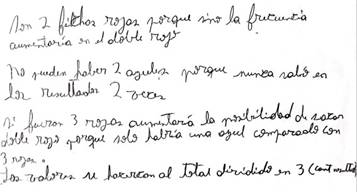 Son 2 fichas rojas porque sino la frecuencia
aumentaría en el doble rojo
No pueden haber 2 azules porque nunca salió en
los resultados 2 veces
Si fueran 3 rojas aumentaría la posibilidad de sacar
doble rojo porque solo habría una azul comparado con
3 rojas.
Los valores se acercan al total dividido en 3